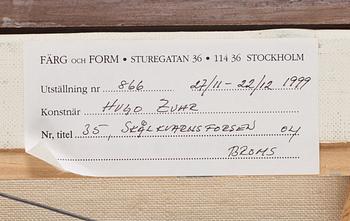 FÄRG OCH FORM • STUREGATAN 36 • 114 36 STOCKHOLM
Utställning nr 866 27/11-22/12 1999
Konstnär HUGO ZUHR
Nr, titel 35, SKÅLKVARNSFORSEN 04
BROMS